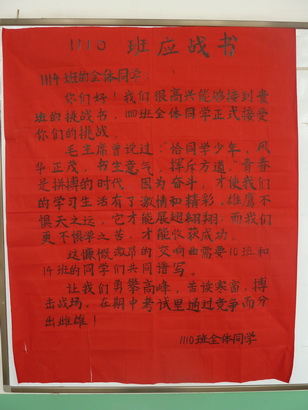 1110 班应战书
1114班的全体同学：
你们好！我们很高兴能够接到贵
班的挑战书，1110班全体同学正式接受
你们的挑战。
毛主席曾说过：恰同学少年，风
华正茂，书生意气，挥斥方遒。青春
是拼搏的时代，因为奋斗，才使我们
的学习生活有了激情和精彩，雄鹰不
惧天之远，它才能展翅翱翔，而我们
更不惧学之苦，才能收获成功。
这慷慨激昂的交响曲需要10班和
14班的同学们共同谱写。
让我们勇攀高峰，苦读寒窗，搏
击战场，在期中考试里通过竞争而分
出雌雄！
1110班全体同学